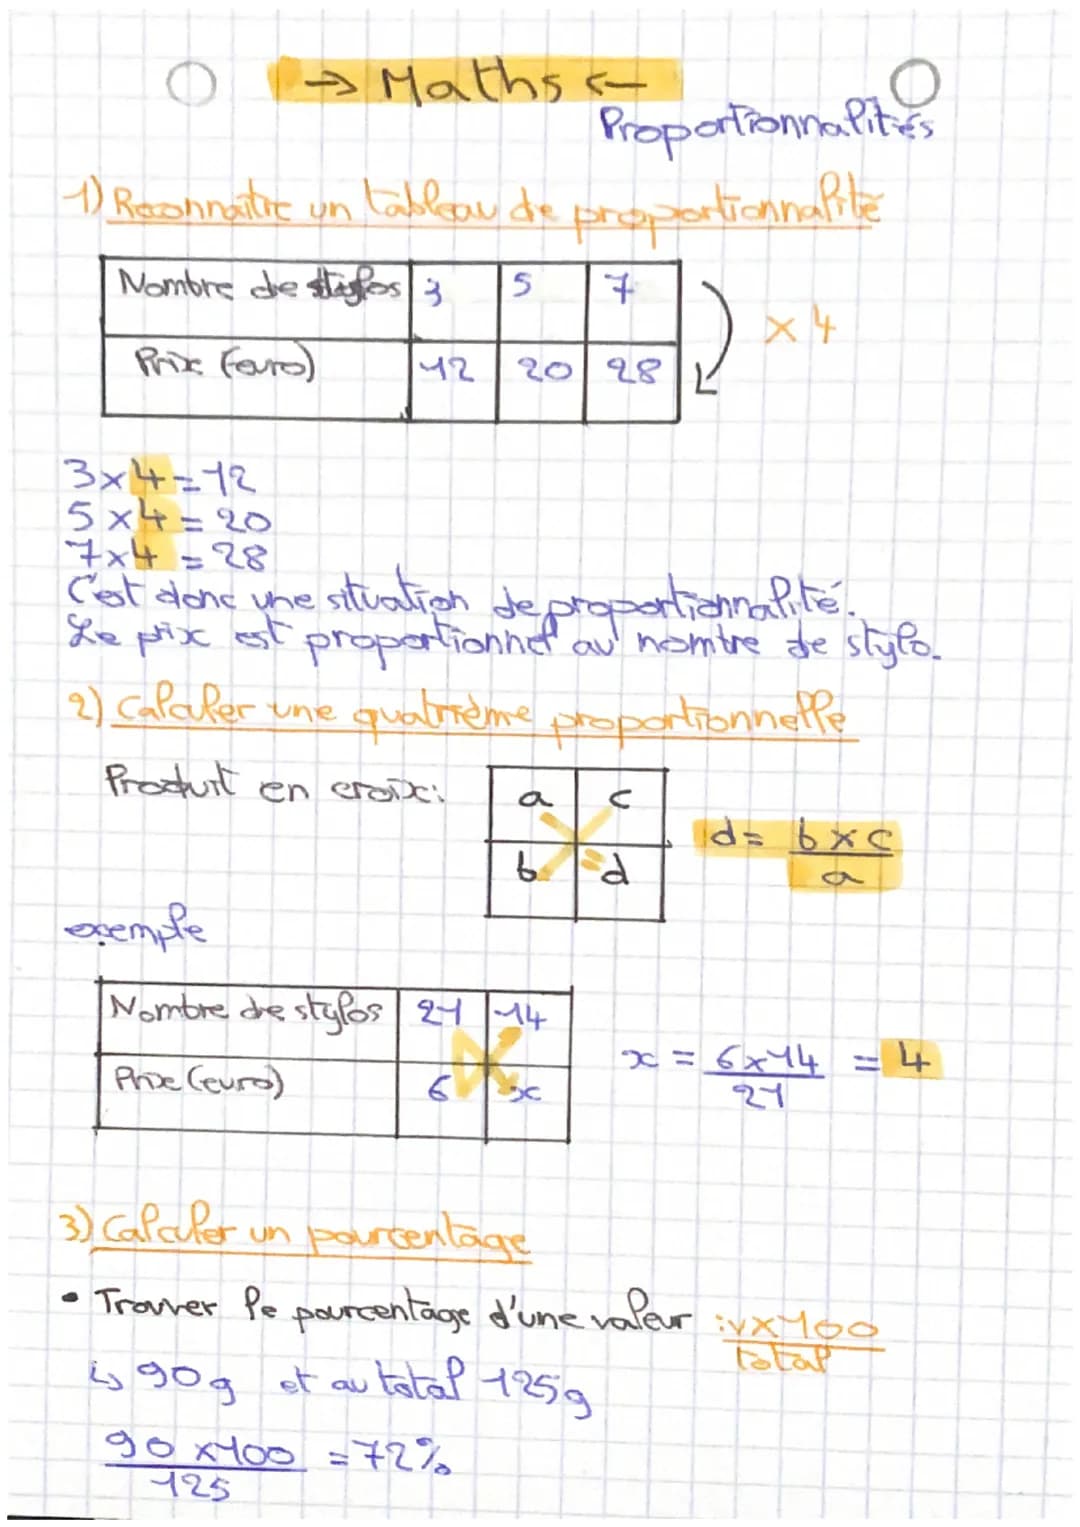 → Maths ←
Proportionnalités
1) Reconnaître un tableau de proportionnalité
Nombre de stylos 3 5 7
x 4
Prix (euro) 12 20 28
3x4=12
5x4=20
7x4=28
C'est donc une situation de proportionnalité.
Le prix est proportionnel au nombre de stylo.
2) Calculer une quatrième proportionnelle
Produit en croix:
a c
b = d
d = b x c
a
exemple
Nombre de stylos 21 14
Prix (euro) 6 x
x = 6x14 = 4
21
3) Calculer un pourcentage
• Trouver le pourcentage d'une valeur : v x 100
total
↳ 90g et au total 125g
90 x 100 = 72%
125